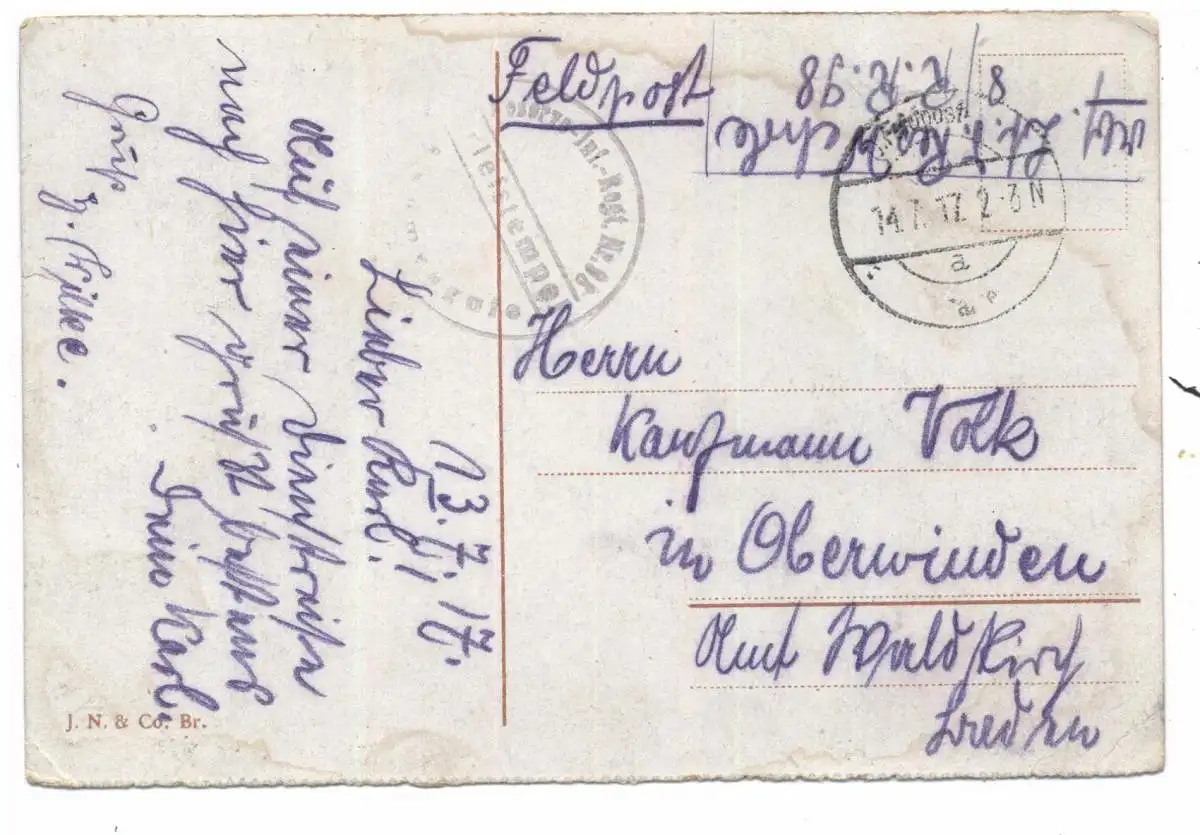 Feldpost
8 / R. 98
Inf.-Regt. Nr. 98
Feldpost
14.7.17. 2-3N
a
Herrn
Kaufmann Volk
in Oberwinden
Amt Waldkirch
Baden
13.7.17.
Lieber Karl!
Auf einer Dienstreise
nach hier grüßt
Dein Karl.
Gruß
J. N. & Co. Br.